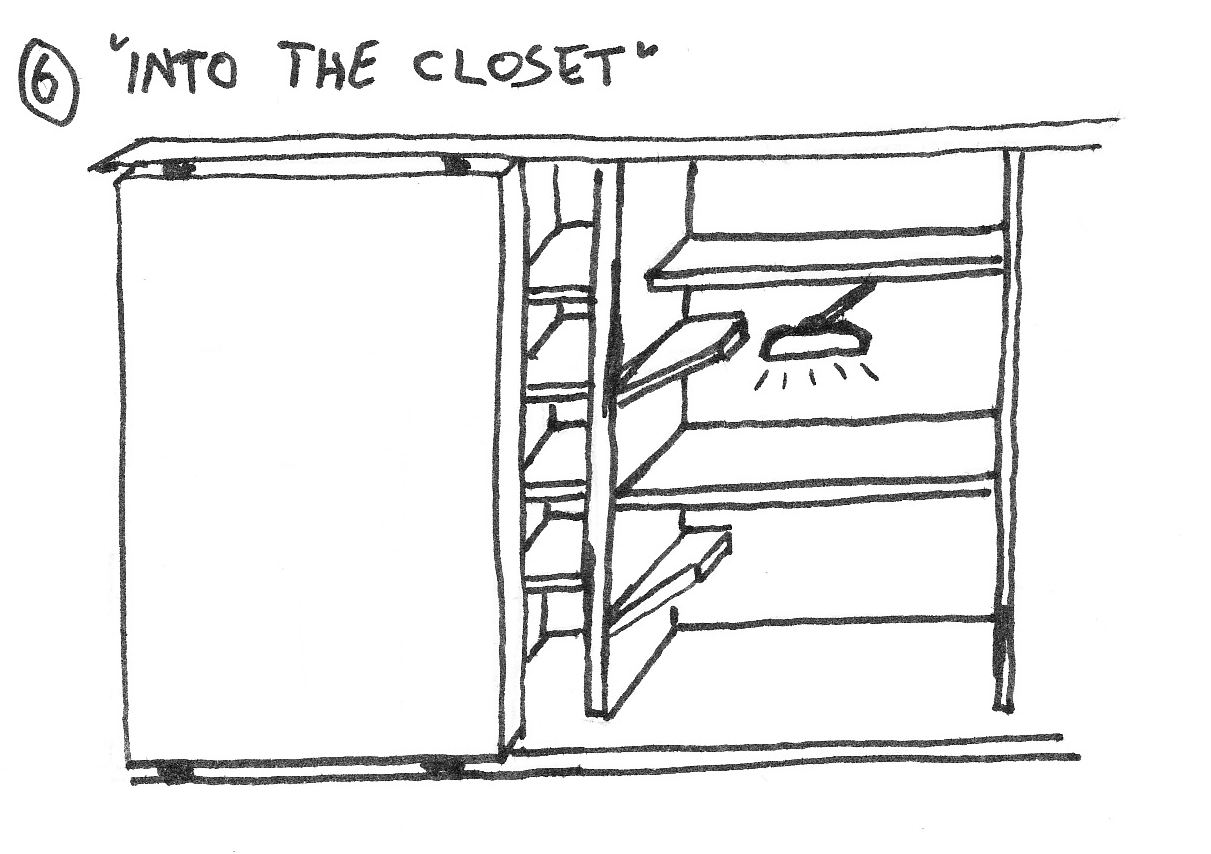 ⑥ "INTO THE CLOSET"